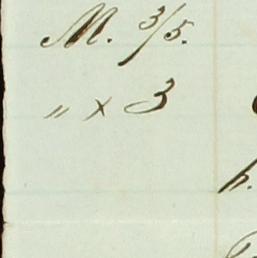 M. 3/5.
" x 3
h.